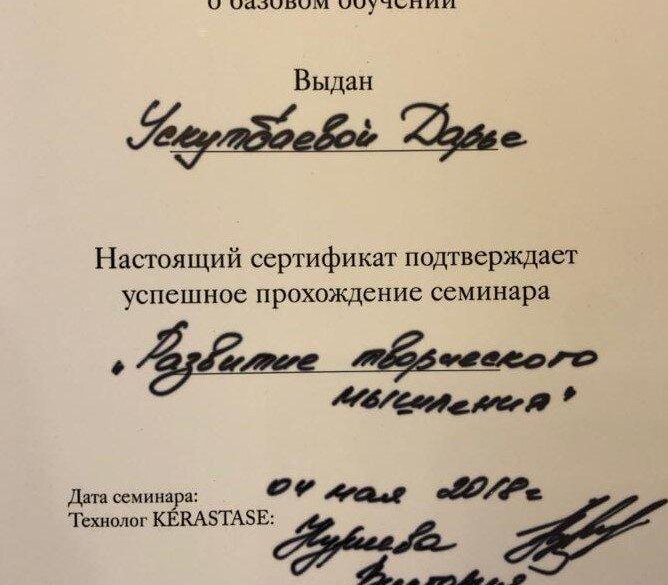 о базовом обучении
Выдан
Ускутбаевой Дарье
Настоящий сертификат подтверждает
успешное прохождение семинара
"Развитие творческого
мышления"
Дата семинара: 04 мая 2018г
Технолог KÉRASTASE:
Нуриева
Виктория